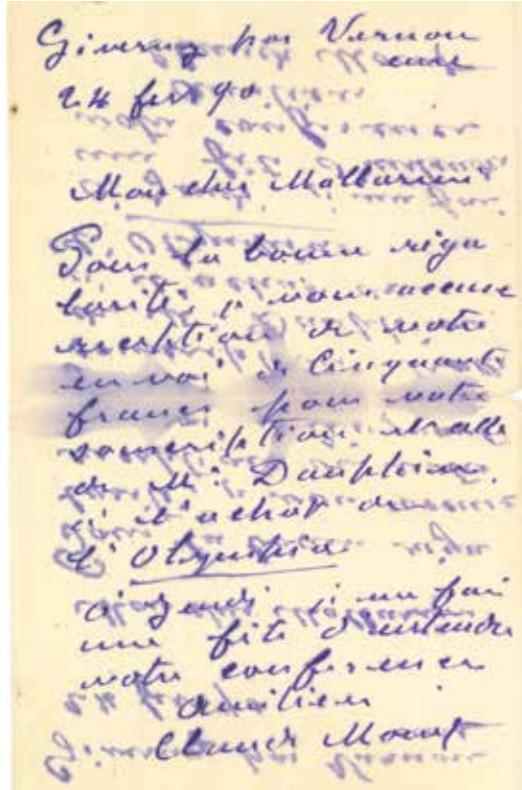 Giverny par Vernon
eure
24 fev 90
Mon cher Mallarmé
Pour la bonne régu
larité, je vous accuse
reception de votre
envoi de Cinquante
francs pour votre
souscription et celle
de Mr Dauphin
à l'achat de
l'Olympia
à jeudi je me fais
une fête d'entendre
votre conférence
amitiés
Claude Monet